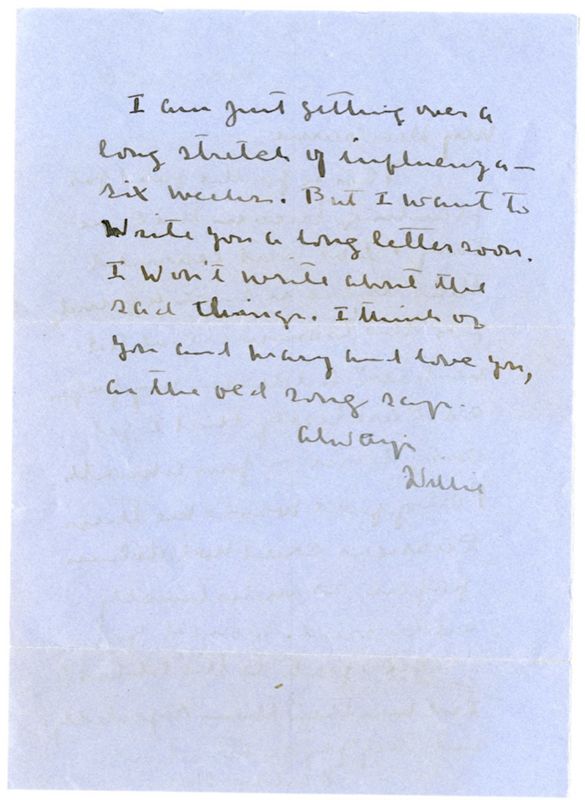 I am just getting over a
long stretch of influenza—
six weeks. But I want to
write you a long letter soon.
I won't write about the
sad things. I think of
you and Mary and love you,
as the old song says.
Always
Willie